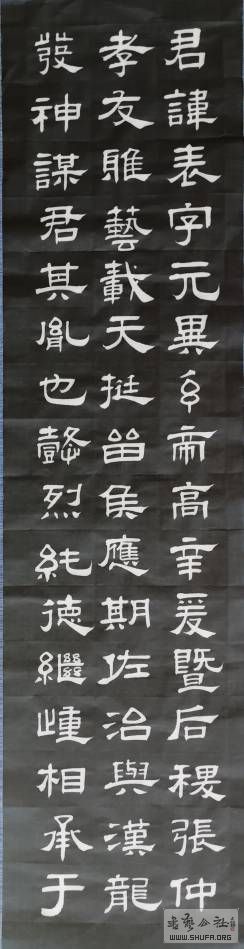 君諱表字元異系帝高辛爰暨后稷張仲
孝友雕藝載天挺畱侯應期佐治與漢龍
發神謀君其胤也懿烈純德繼踵相承于
書藝公社
WWW.SHUFA.ORG